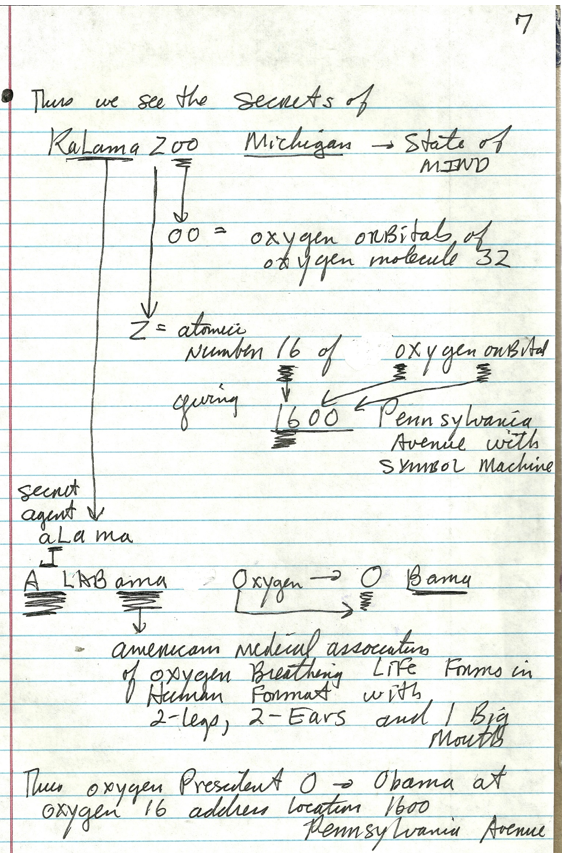 7
Thus we see the secrets of
KaLama Zoo Michigan → State of
MIND
OO = oxygen orBitals of
oxygen molecule 32
Z = atomic
Number 16 of oxygen onBital
giving 1600 Pennsylvania
Avenue with
SYMBOL Machine
secret
agent
aLama
I
A LABama Oxygen → O Bama
american Medical association
of oxygen Breathing LIFE Forms in
Human Format with
2-legs, 2-Ears and 1 Big
Mouth
Thus oxygen President O → Obama at
oxygen 16 address location 1600
Pennsylvania Avenue